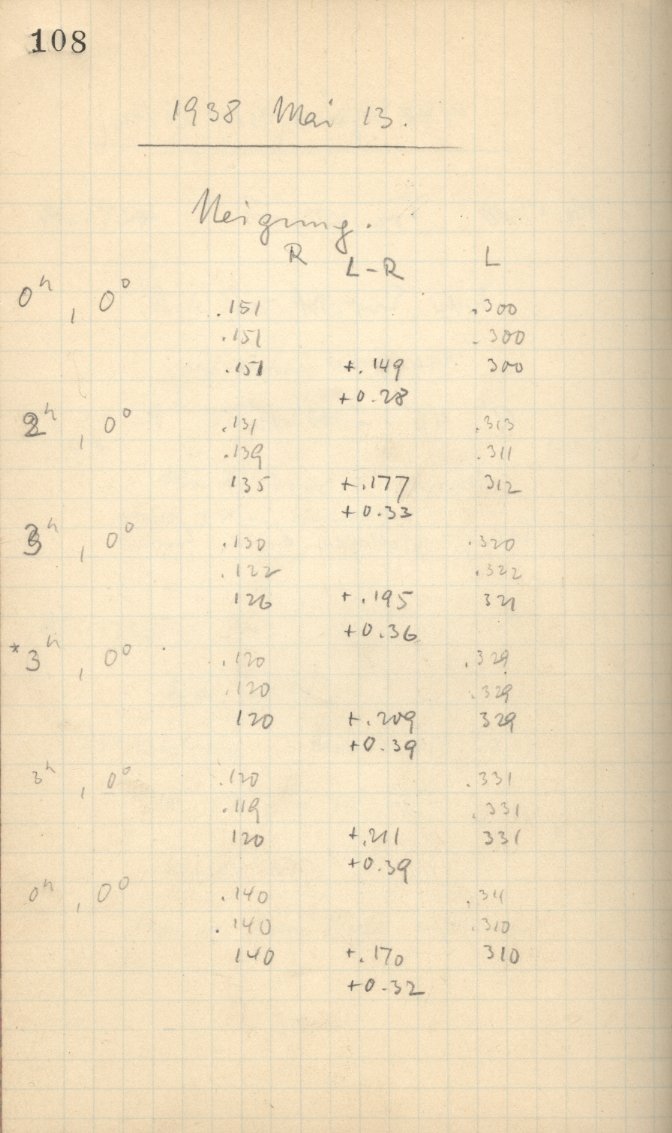 108
1938 Mai 13.
Neigung.
R L-R L
0h, 0° .151 .300
.151 .300
.151 +.149 300
+0.28
2h, 0° .131 .313
.139 .311
135 +.177 312
+0.33
3h, 0° .130 .320
.122 .322
126 +.195 321
+0.36
*3h, 0° .120 .329
.120 .329
120 +.209 329
+0.39
3h, 0° .120 .331
.119 .331
120 +.211 331
+0.39
0h, 0° .140 .311
.140 .310
140 +.170 310
+0.32